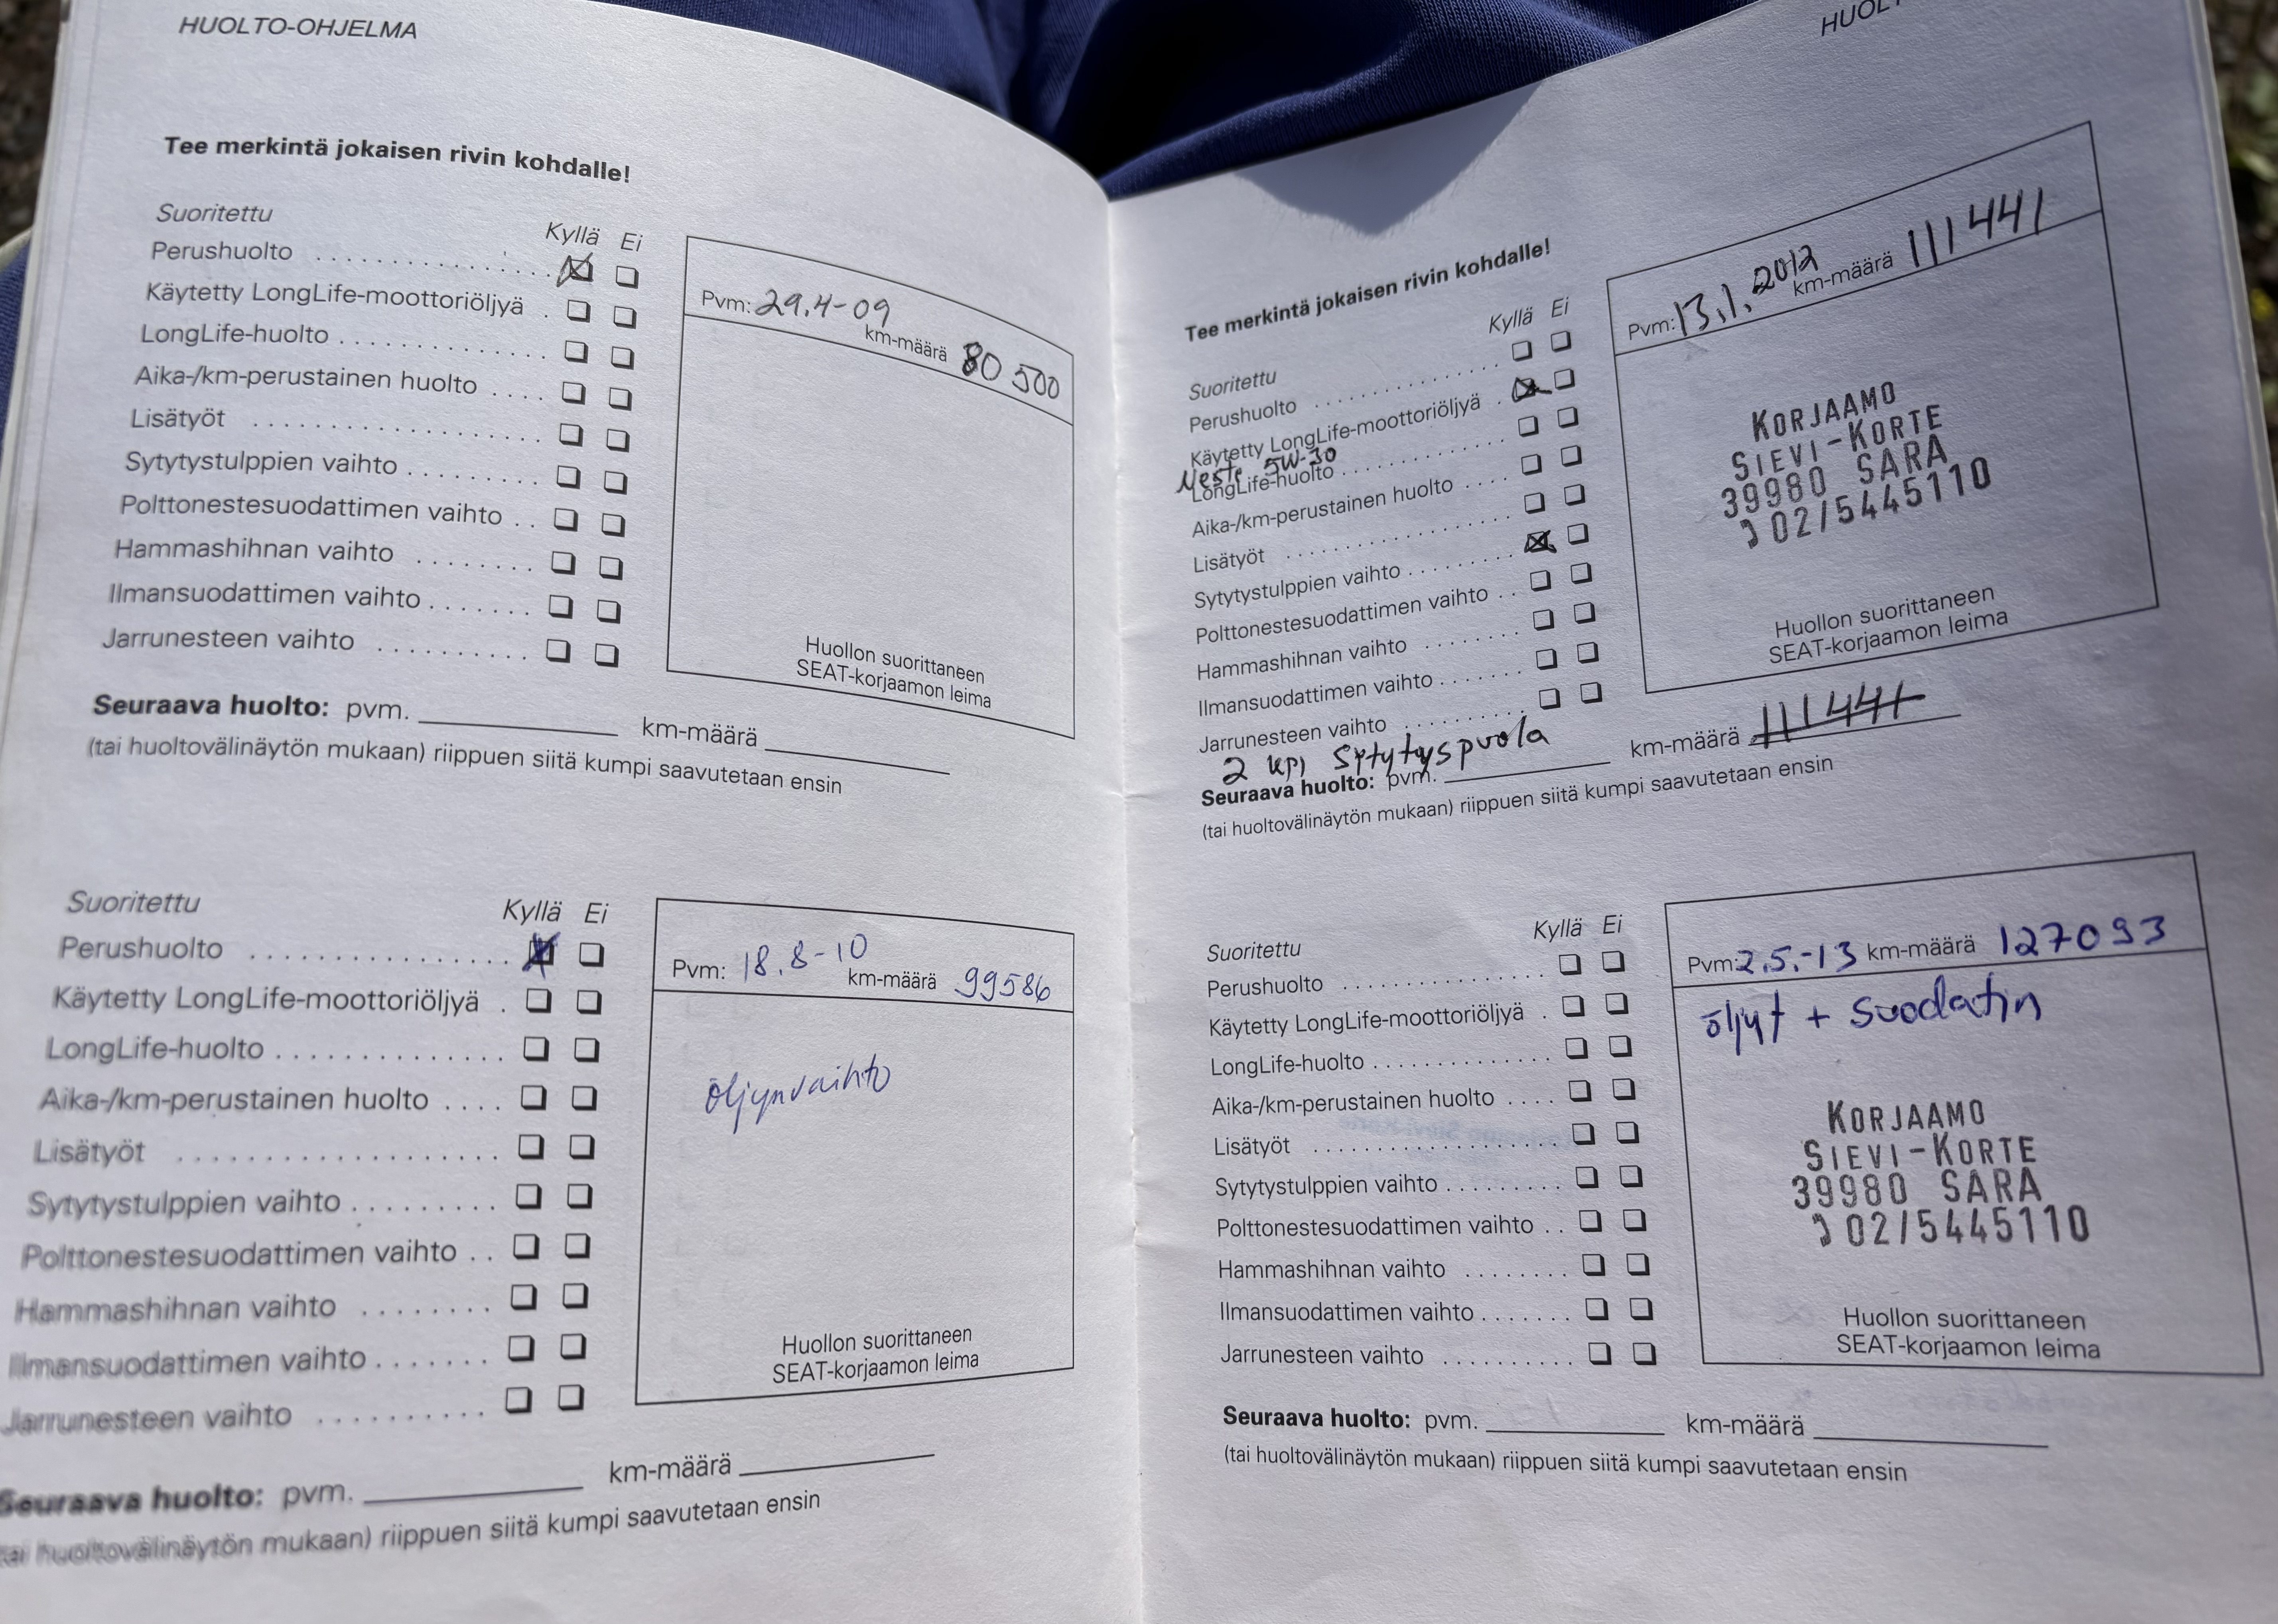 HUOLTO-OHJELMA
Tee merkintä jokaisen rivin kohdalle!
Suoritettu Kyllä Ei
Perushuolto
Käytetty LongLife-moottoriöljyä
LongLife-huolto
Aika-/km-perustainen huolto
Lisätyöt
Sytytystulppien vaihto
Polttonestesuodattimen vaihto
Hammashihnan vaihto
Ilmansuodattimen vaihto
Jarrunesteen vaihto
Pvm: 29.4-09 km-määrä 80 500
Huollon suorittaneen
SEAT-korjaamon leima
Seuraava huolto: pvm. km-määrä
(tai huoltovälinäytön mukaan) riippuen siitä kumpi saavutetaan ensin
Suoritettu Kyllä Ei
Perushuolto
Käytetty LongLife-moottoriöljyä
LongLife-huolto
Aika-/km-perustainen huolto
Lisätyöt
Sytytystulppien vaihto
Polttonestesuodattimen vaihto
Hammashihnan vaihto
Ilmansuodattimen vaihto
Jarrunesteen vaihto
Pvm: 18.8-10 km-määrä 99586
öljynvaihto
Huollon suorittaneen
SEAT-korjaamon leima
Seuraava huolto: pvm. km-määrä
tai huoltovälinäytön mukaan) riippuen siitä kumpi saavutetaan ensin
Tee merkintä jokaisen rivin kohdalle!
Suoritettu Kyllä Ei
Perushuolto
Käytetty LongLife-moottoriöljyä
Neste 5W-30
LongLife-huolto
Aika-/km-perustainen huolto
Lisätyöt
Sytytystulppien vaihto
Polttonestesuodattimen vaihto
Hammashihnan vaihto
Ilmansuodattimen vaihto
Jarrunesteen vaihto
2 kpl Sytytyspuola
Pvm: 13.1.2012 km-määrä 111441
KORJAAMO
SIEVI-KORTE
39980 SARA
02/5445110
Huollon suorittaneen
SEAT-korjaamon leima
Seuraava huolto: pvm. km-määrä 111441
(tai huoltovälinäytön mukaan) riippuen siitä kumpi saavutetaan ensin
Suoritettu Kyllä Ei
Perushuolto
Käytetty LongLife-moottoriöljyä
LongLife-huolto
Aika-/km-perustainen huolto
Lisätyöt
Sytytystulppien vaihto
Polttonestesuodattimen vaihto
Hammashihnan vaihto
Ilmansuodattimen vaihto
Jarrunesteen vaihto
Pvm: 2.5.-13 km-määrä 127093
öljyt + suodatin
KORJAAMO
SIEVI-KORTE
39980 SARA
02/5445110
Huollon suorittaneen
SEAT-korjaamon leima
Seuraava huolto: pvm. km-määrä
(tai huoltovälinäytön mukaan) riippuen siitä kumpi saavutetaan ensin